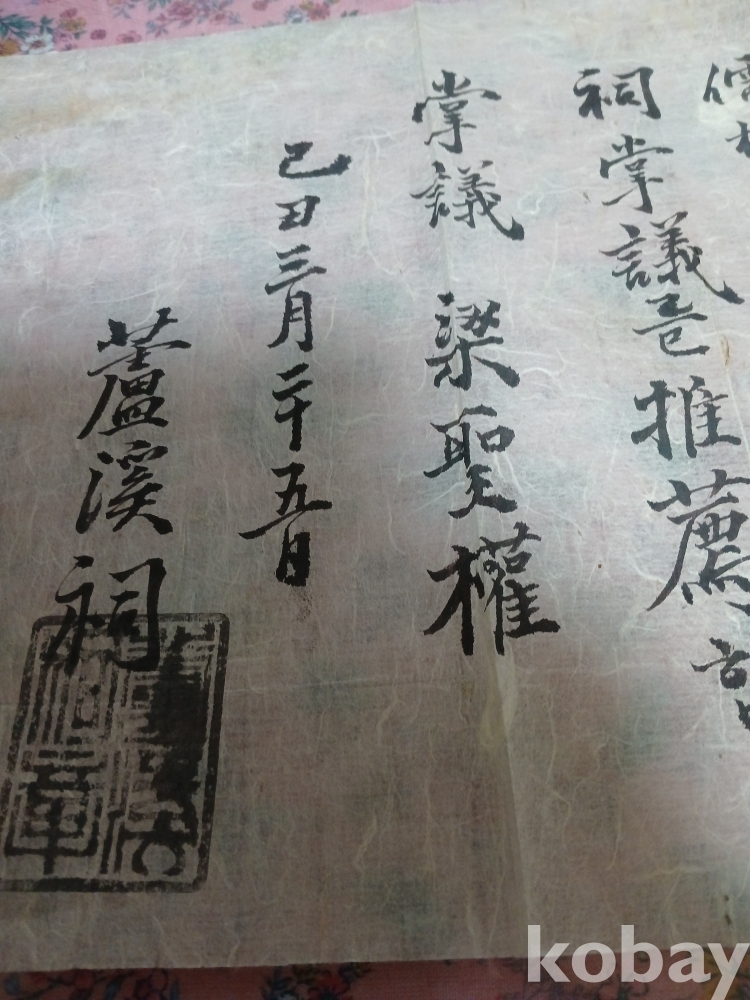 儒
祠掌議推薦
掌議 梁聖權
己丑三月二十五日
蘆溪祠
kobay